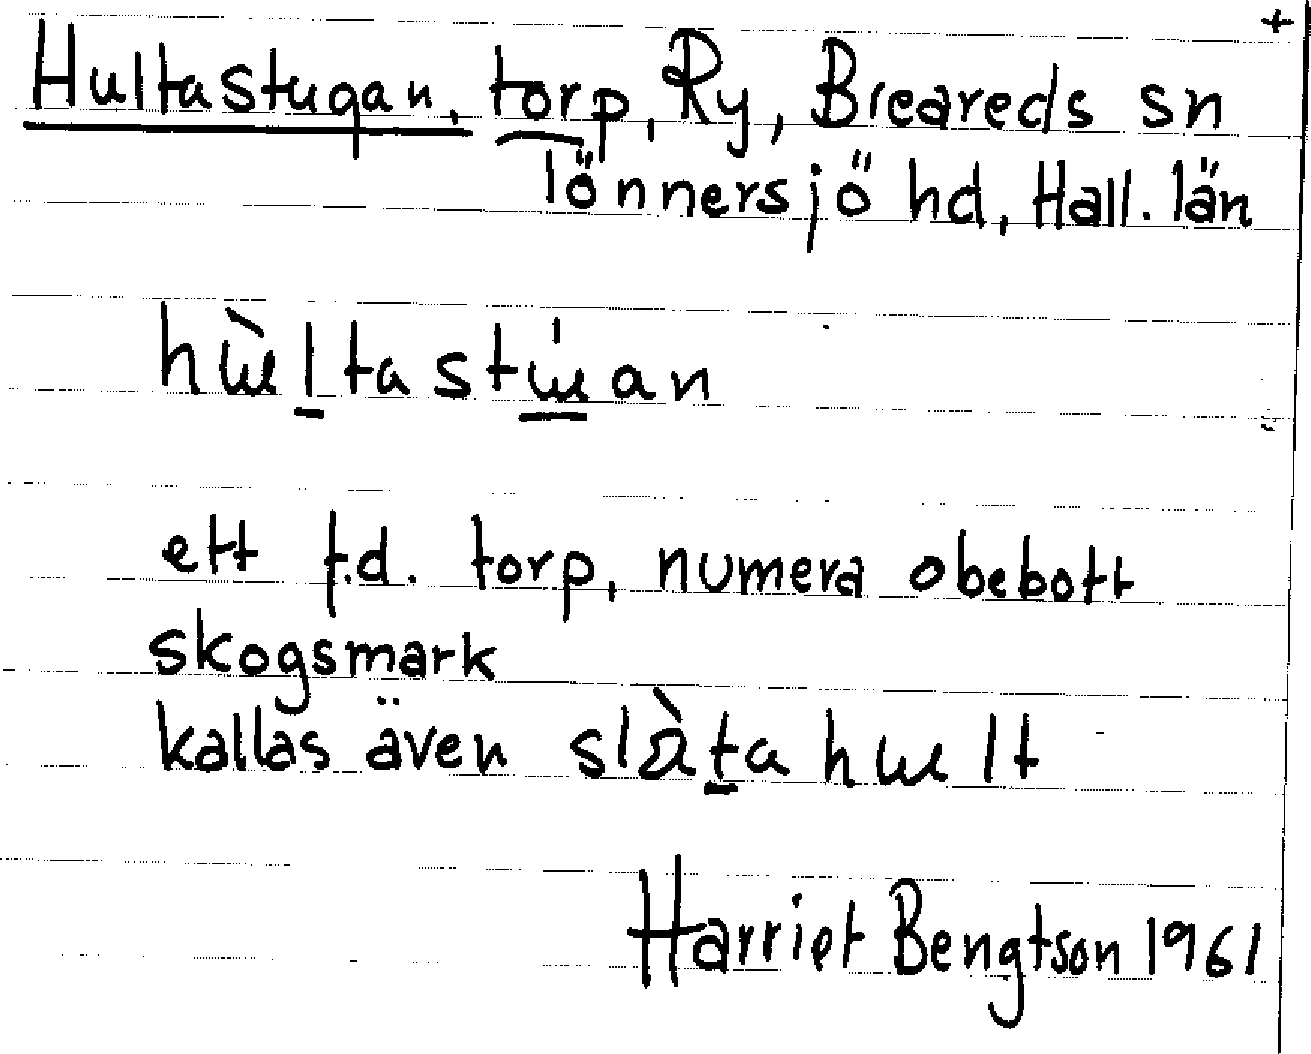 +
Hultastugan, torp, Ry, Breareds sn
lönnersjö hd, Hall. län
hɯ̀ltastɯ́an
ett f.d. torp, numera obebott
skogsmark
kallas även slɑ̀ta hɯlt
Harriet Bengtson 1961